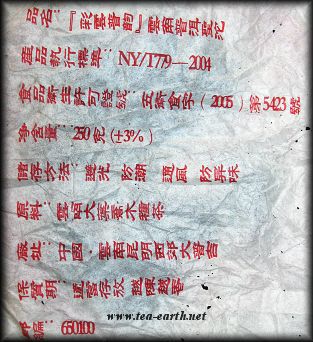 品名：『彩雲普韵』雲南普洱沱
產品執行標準：NY/T779—2004
食品衛生許可證號：五衛食字（2005）第5423號
净含量：250克(±3%)
儲存方法：避光 防潮 通風 防異味
原料：雲南大葉喬木曬茶
廠址：中國·雲南昆明西郊大普吉
保質期：適宜存放 越陳越香
郵編：650100
www.tea-earth.net